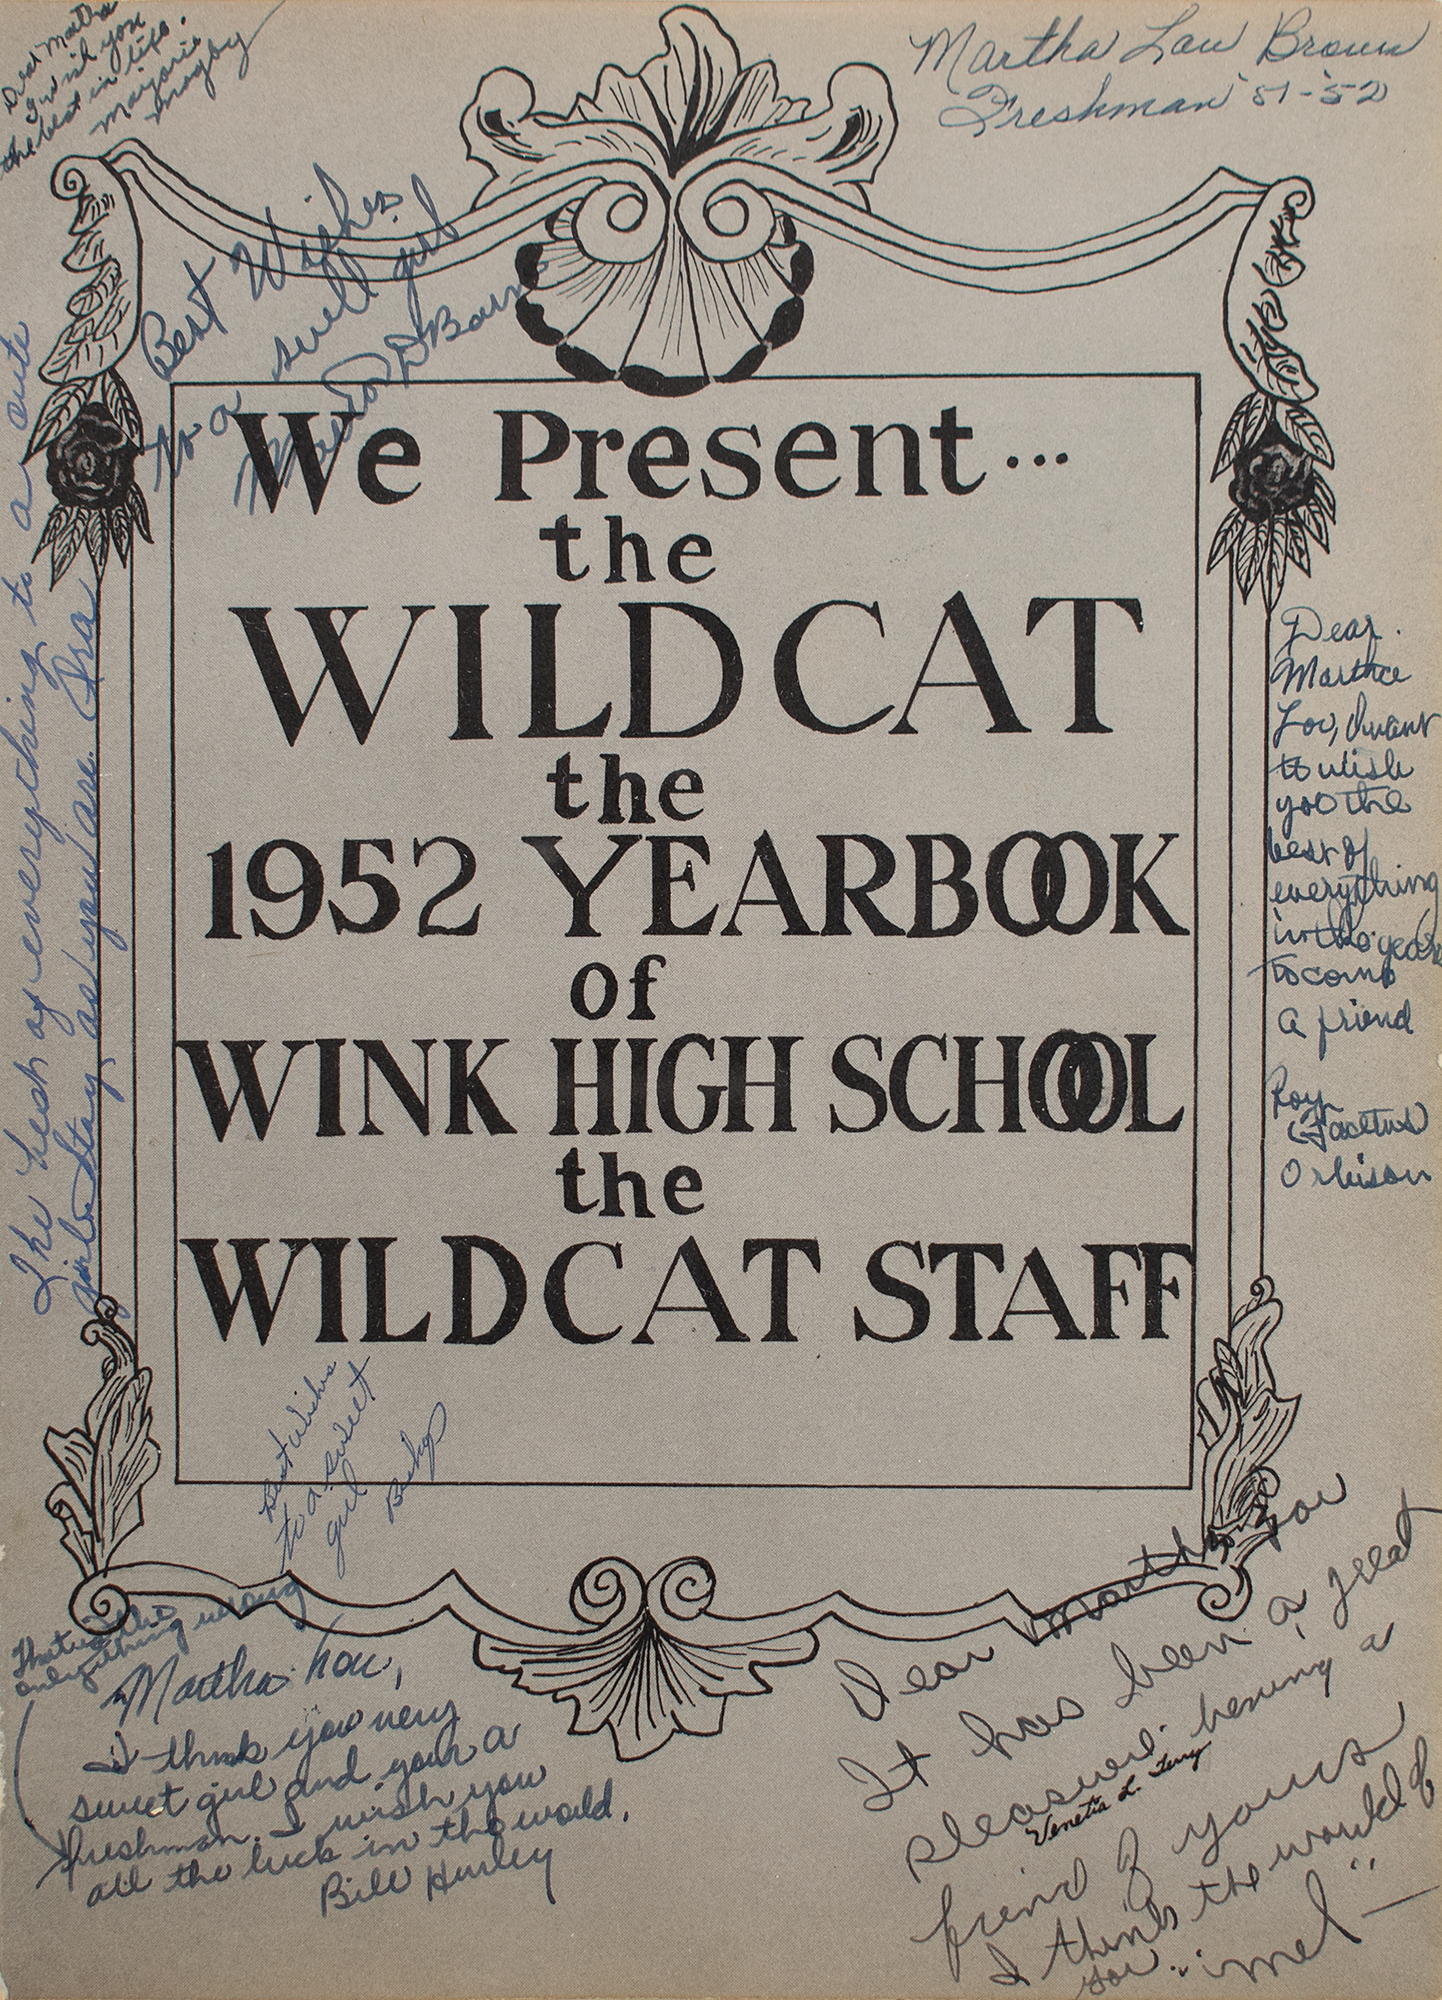 Dear Martha
I wish you
the best in life.
Marjorie
Magby
Martha Lou Brown
Freshman '51-'52
Best Wishes
to a swell girl
We Present...
the
WILDCAT
the
1952 YEARBOOK
of
WINK HIGH SCHOOL
the
WILDCAT STAFF
The best of everything to a cute
girl. Stay as you are.
Dear
Martha
Lou, I want
to wish
you the
best of
everything
in the years
to come
a friend
Roy
Orbison
Best Wishes
to a sweet
girl
Bishop
That's the
only thing wrong
Martha Lou,
I think you very
sweet girl and your a
freshman. I wish you
all the luck in the world.
Bill Hurley
Dear Martha Lou
It has been a great
pleasure having a
Venetia L. Terry
friend of yours
I think the world of
you
"me!"